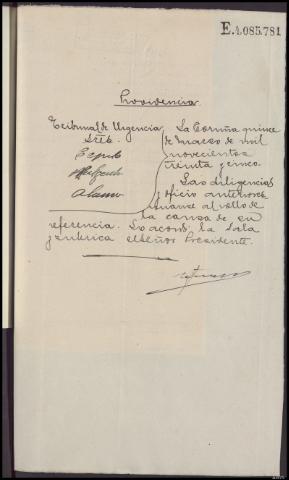 E.4.085.781
Providencia
Tribunal de Urgencia
Sres.
La Coruña quince
de marzo de mil
novecientos
treinta y cinco.
Las diligencias
y oficio anteriores
unanse al rollo de
la causa de su
referencia. Lo acordó la Sala
y rubrica el Señor Presidente.